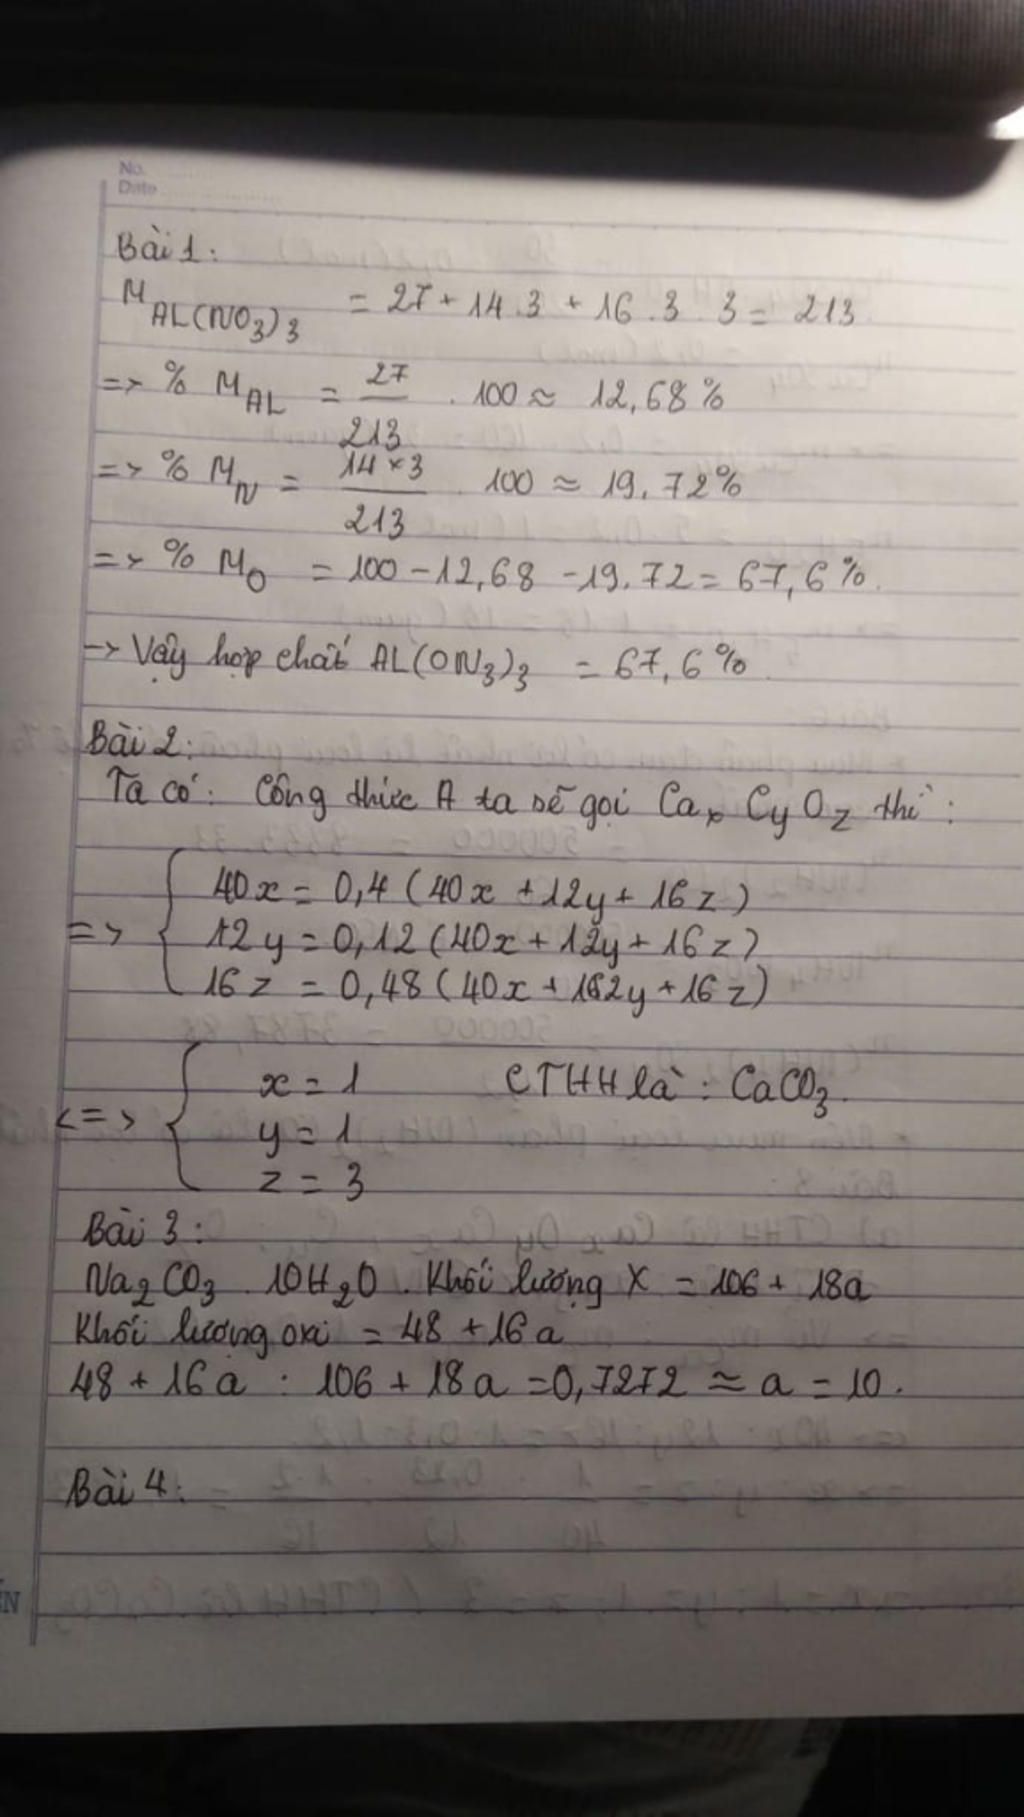 No.
Date
Bài 1:
M AL(NO3)3 = 27 + 14.3 + 16.3.3 = 213
=> % M AL = 27/213 . 100 ≈ 12,68%
=> % M N = 14×3/213 100 ≈ 19,72%
=> % M O = 100 - 12,68 - 19,72 = 67,6%.
-> Vậy hợp chất AL(ON3)3 = 67,6%.
Bài 2:
Ta có: Công thức A ta sẽ gọi Cax CyOz thì:
=> { 40x = 0,4 (40x + 12y + 16z)
12y = 0,12 (40x + 12y + 16z)
16z = 0,48 (40x + 162y + 16z)
<=> { x = 1 CTHH là: CaCO3.
y = 1
z = 3
Bài 3:
Na2CO3 . 10H2O . Khối lượng X = 106 + 18a
Khối lượng oxi = 48 + 16a
48 + 16a : 106 + 18a = 0,7272 ≈ a = 10.
Bài 4: